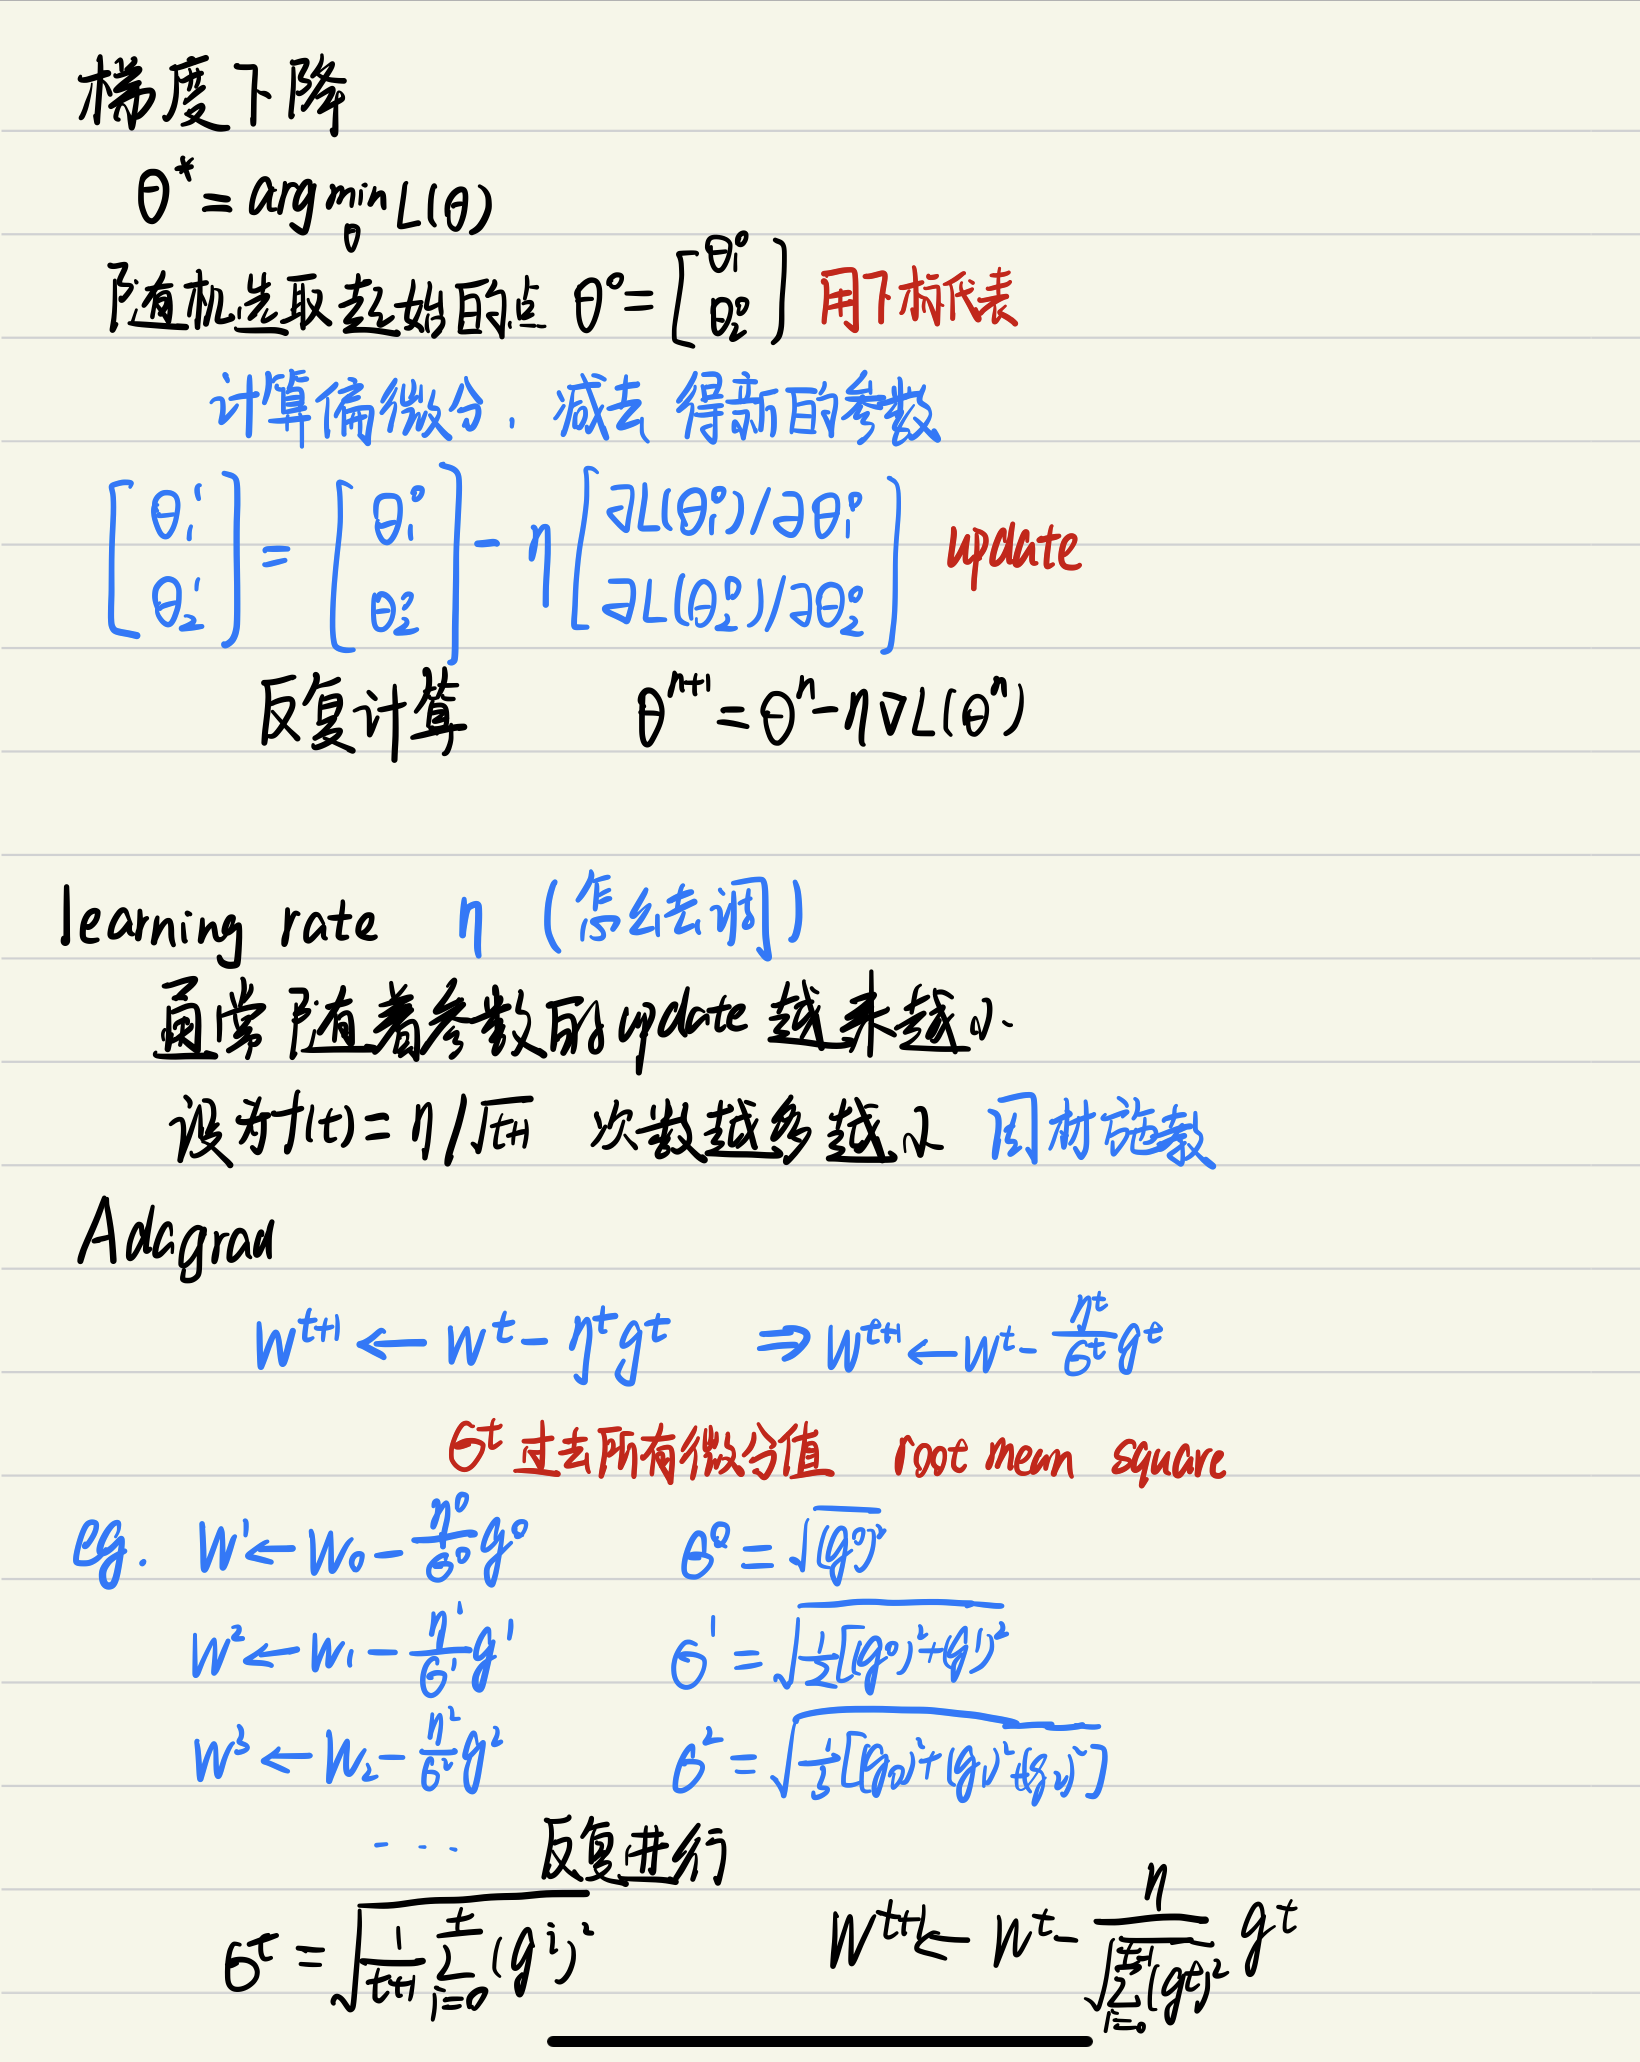 梯度下降
θ* = arg min_θ L(θ)
随机选取起始的点 θ⁰ = [θ₁⁰ θ₂⁰] 用下标代表
计算偏微分, 减去 得新的参数
[θ₁¹ θ₂¹] = [θ₁⁰ θ₂⁰] - η [∂L(θ₁⁰)/∂θ₁⁰ ∂L(θ₂⁰)/∂θ₂⁰] update
反复计算 θⁿ⁺¹ = θⁿ - η∇L(θⁿ)
learning rate η (怎么去调)
通常随着参数的update越来越小.
设为f(t) = η/√t+1 次数越多越小 因材施教
Adagrad
W^{t+1} ← W^t - η^t g^t ⇒ W^{t+1} ← W^t - η^t/σ^t g^t
σ^t 过去所有微分值 root mean square
eg. W¹ ← W₀ - η⁰/σ⁰ g⁰ σ⁰ = √(g⁰)²
W² ← W₁ - η¹/σ¹ g¹ σ¹ = √1/2[(g⁰)²+(g¹)²
W³ ← W₂ - η²/σ² g² σ² = √1/3[(g₀)²+(g₁)²+(g₂)²]
... 反复进行
σ^t = √1/t+1 Σ_{i=0}^{t} (g^i)² W^{t+1} ← W^t - η/√Σ_{i=0}^{t+1}(g^t)² g^t